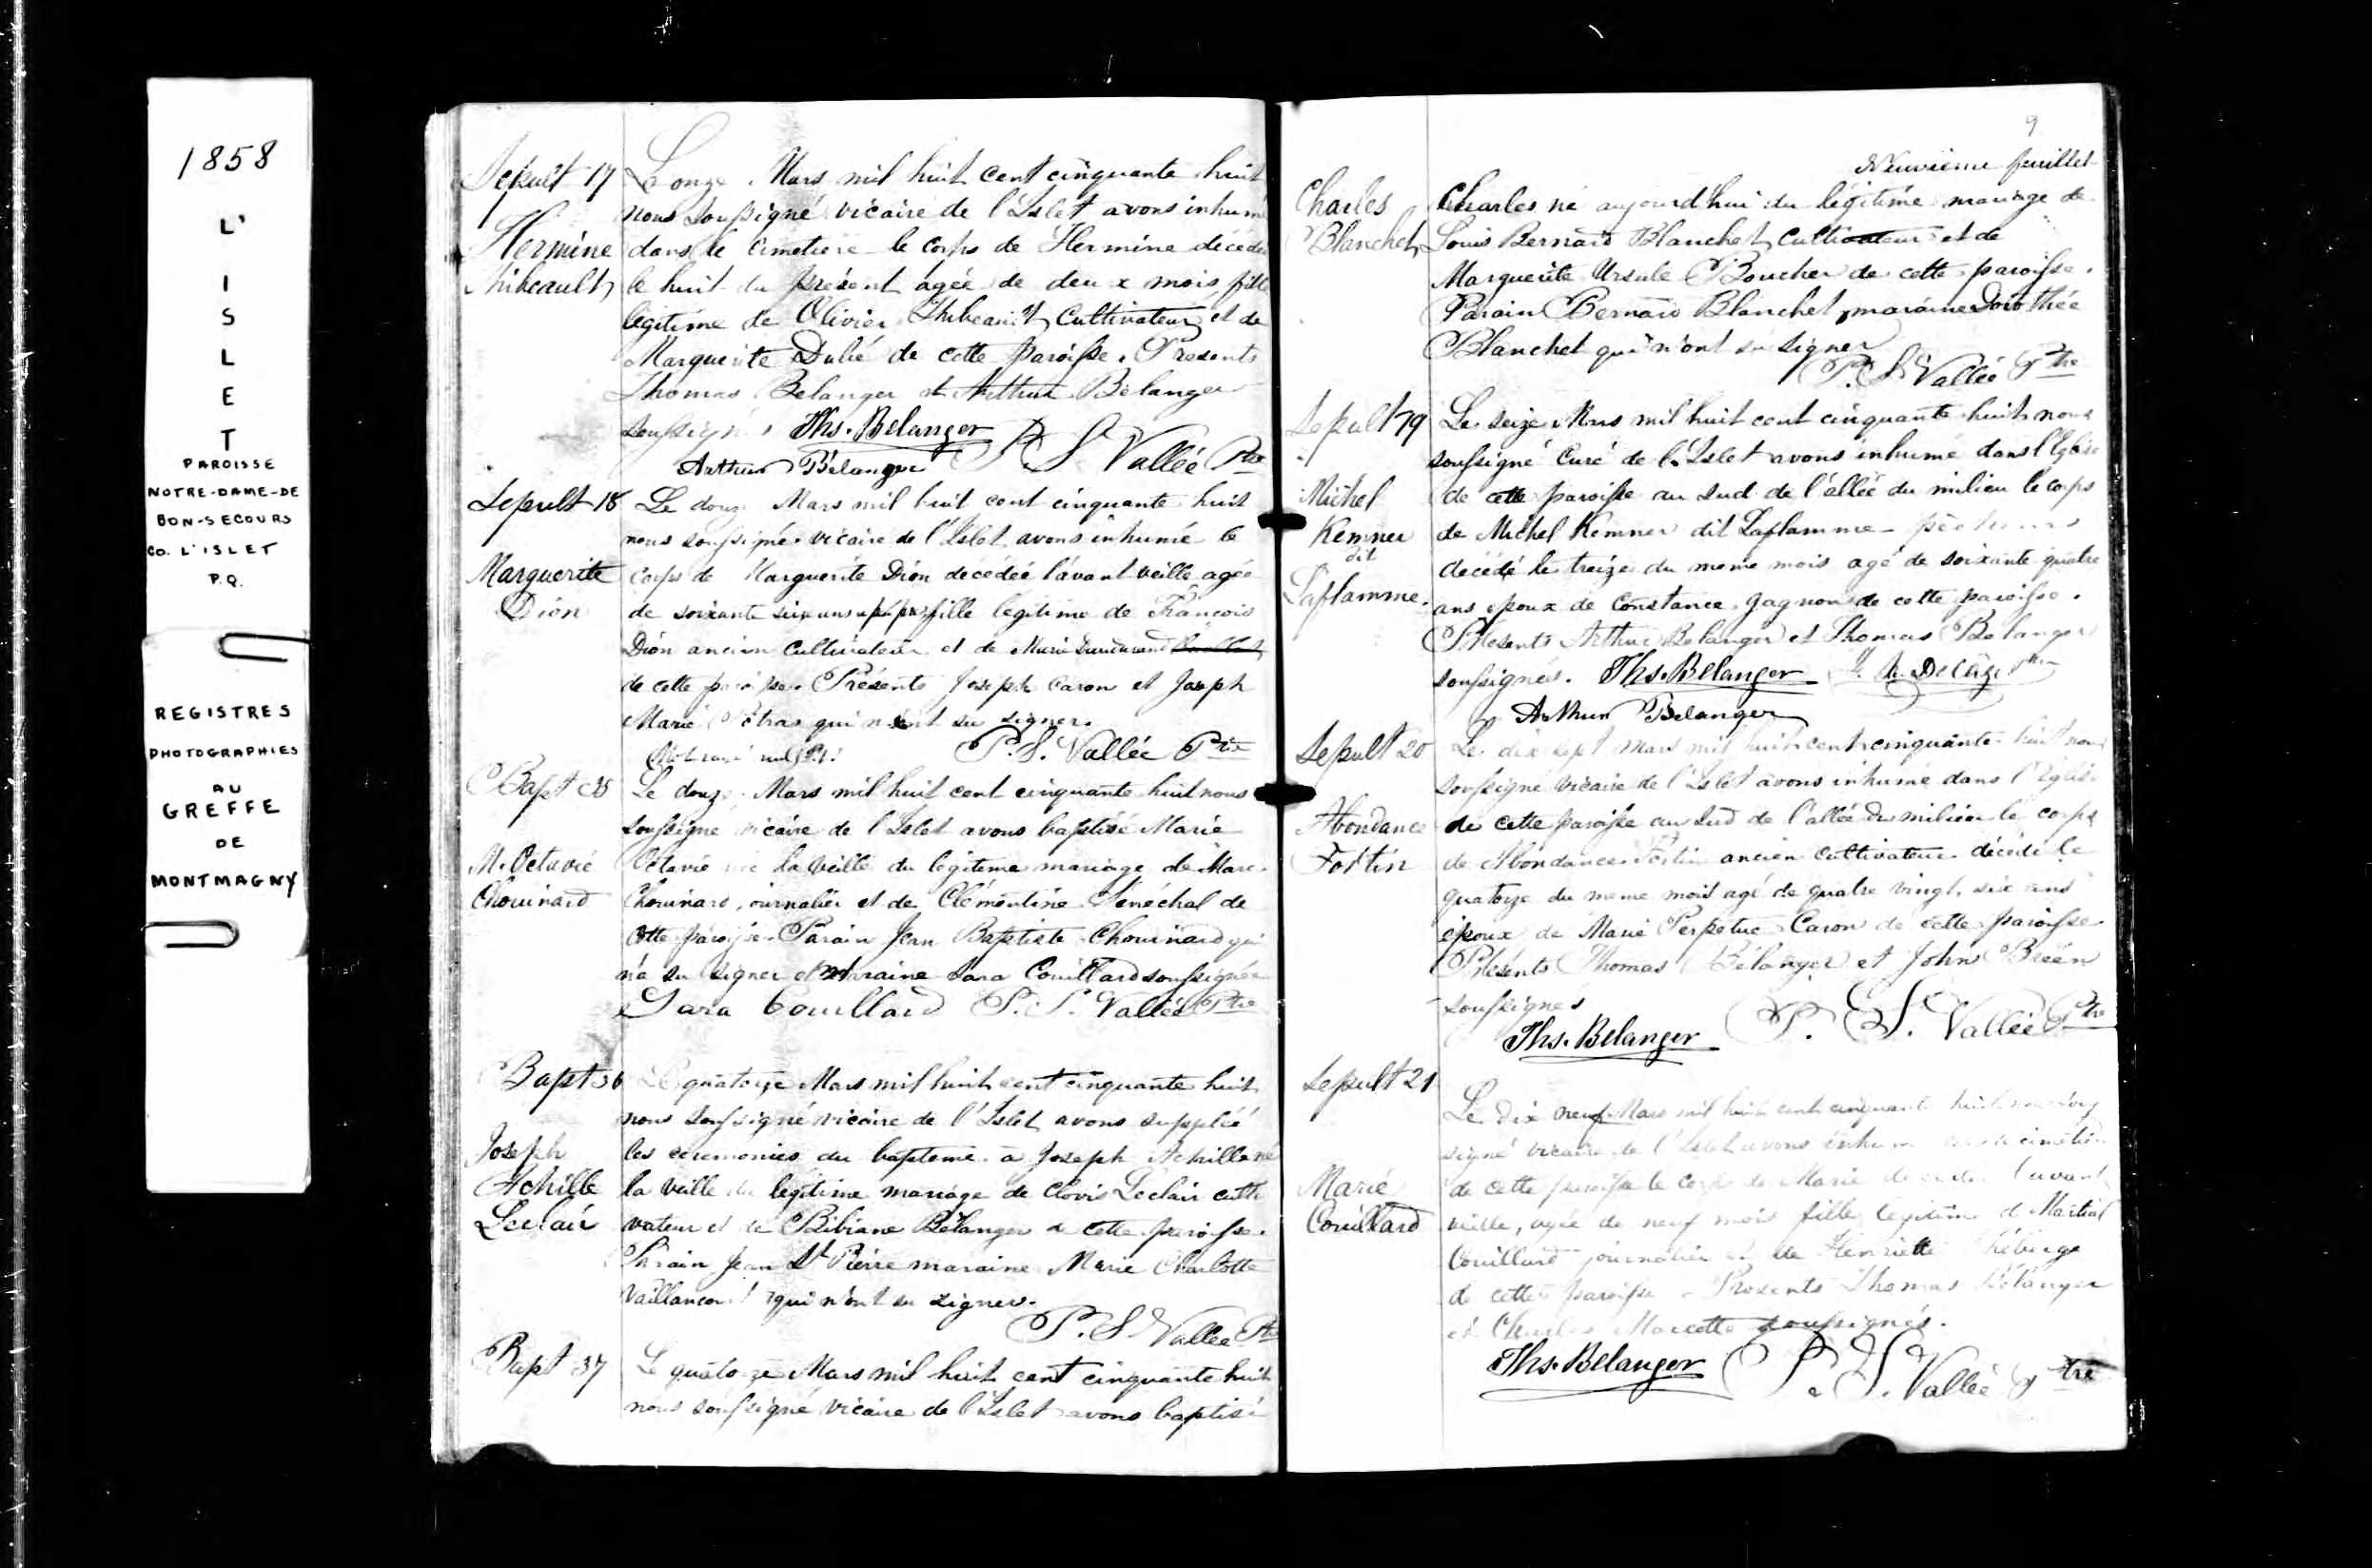 1858
L'
I
S
L
E
T
PAROISSE
NOTRE-DAME-DE
BON-SECOURS
CO. L'ISLET
P.Q.
REGISTRES
PHOTOGRAPHIES
AU
GREFFE
DE
MONTMAGNY
Sépult 17
Hermine
Thibeault
Le onze Mars mil huit cent cinquante huit
nous soussigné vicaire de l'Islet avons inhumé
dans le cimetiere le corps de Hermine décédée
le huit du présent agée de deux mois fille
légitime de Olivier Thibeault Cultivateur et de
Marguerite Dubé de cette paroisse. Presents
Thomas Belanger et Arthur Bélanger
soussignés Ths. Belanger
Arthur Bélanger P. S. Vallée Ptre
Sepult 18
Marguerite
Dion
Le douze Mars mil huit cent cinquante huit
nous soussigné vicaire de l'Islet avons inhumé le
corps de Marguerite Dion decedée l'avant veille agée
de soixante six ans fille legitime de François
Dion ancien cultivateur et de Marie
de cette paroisse. Présents Joseph Caron et Joseph
Marie qui n'ont su signer.
P. S. Vallée Ptre
Bapt 35
M. Octavie
Chouinard
Le douze Mars mil huit cent cinquante huit nous
soussigné vicaire de l'Islet avons baptisé Marie
Octavie née la veille du légitime mariage de Marc
Chouinard, journalier et de Clémentine Sénéchal de
cette paroisse. Parain Jean Baptiste Chouinard qui
n'a su signer et maraine Sara Couillard soussignée
Sara Couillard P. S. Vallée Ptre
Bapt 36
Joseph
Achille
Leclair
Le quatorze Mars mil huit cent cinquante huit
nous soussigné vicaire de l'Islet avons suppléé
les ceremonies du bapteme à Joseph Achille né
la veille du légitime mariage de Clovis Leclair culti
vateur et de Bibiane Bélanger de cette paroisse.
Parain Jean St Pierre maraine Marie Charlotte
Vaillancourt qui n'ont su signer.
P. S. Vallée Ptre
Bapt 37
Le quatorze Mars mil huit cent cinquante huit
nous soussigné vicaire de l'Islet avons baptisé
9
Neuvième feuillet
Charles
Blanchet
Charles né aujourd'hui du légitime mariage de
Louis Bernard Blanchet Cultivateur et de
Marguerite Ursule Boucher de cette paroisse.
Parain Bernard Blanchet, maraine Dorothée
Blanchet qui n'ont su signer
P. S. Vallée Ptre
Sepult 19
Michel
Kemner
dit
Laflamme.
Le seize Mars mil huit cent cinquante huit nous
soussigné Curé de l'Islet avons inhumé dans l'Eglise
de cette paroisse au sud de l'allée du milieu le corps
de Michel Kemner dit Laflamme
décédé le treize du meme mois agé de soixante quatre
ans epoux de Constance Gagnon de cette paroisse.
Presents Arthur Belanger et Thomas Belanger
soussignés. Ths. Belanger
Arthur Belanger
Sepult 20
Abondance
Fortin
Le dix sept Mars mil huit cent cinquante huit nous
soussigné vicaire de l'Islet avons inhumé dans l'Eglise
de cette paroisse au sud de l'allée du milieu le corps
de Abondance Fortin ancien cultivateur décédé le
quatorze du meme mois agé de quatre vingt six ans
époux de Marie Perpetue Caron de cette paroisse
Présents Thomas Bélanger et John Breen
soussignés
Ths. Belanger P. S. Vallée Ptre
Sepult 21
Marie
Couillard
Le dix neuf Mars mil huit cent cinquante huit nous sous
signé vicaire de l'Islet avons inhumé cimetière
de cette paroisse le corps de Marie decedée l'avant
veille, agée de neuf mois fille legitime de Martial
Couillard journalier et de Henriette Théberge
de cette paroisse. Presents Thomas Bélanger
et Charles Marcotte soussignés.
Ths. Belanger P. S. Vallée Ptre